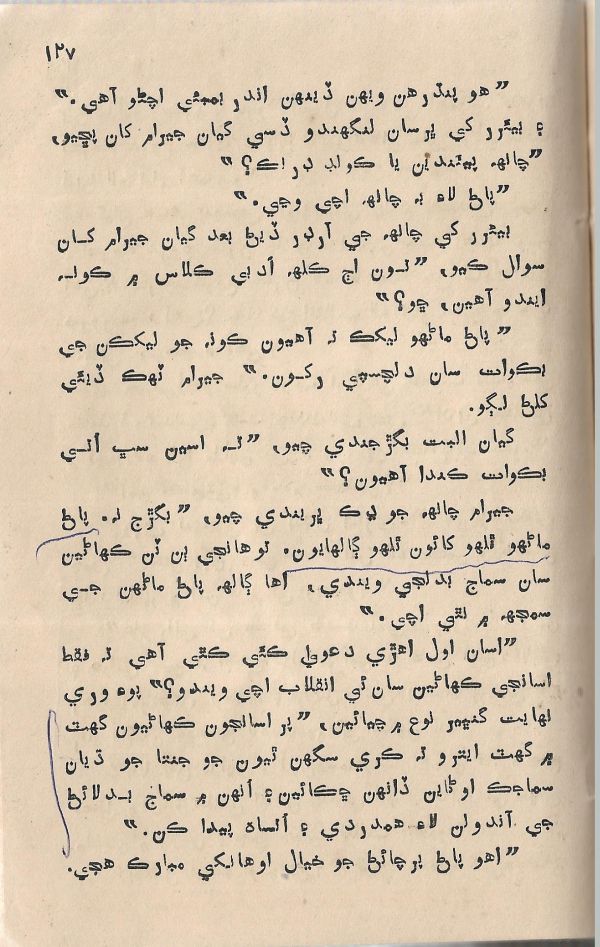 ۱۲۷
”هو پندرهن ويهن ڏينهن اندر بمبئي اچڻو آهي.“
۽ بيئرر کي ڀرسان لنگهندو ڏسي گيان جيرام کان پڇيو،
”چانهه پيئندين يا ڪولڊ ڊرنڪ؟“
”پاڻ لاءِ بہ چانهه اچي وڃي.“
بيئرر کي چانهه جي آرڊر ڏيڻ بعد گيان جيرام کان
سوال ڪيو، ”تون اڄ ڪلهه ادبي ڪلاس ۾ ڪونہ
ايندو آهين، ڇو؟“
”پاڻ ماڻهو ليکڪ تہ آهيون ڪونہ جو ليکڪن جي
بڪواس سان دلچسپي رکون.“ جيرام ٽهڪ ڏيئي
کلڻ لڳو.
گيان البت بگڙجندي چيو، ”تہ اسين سڀ اتي
بڪواس ڪندا آهيون؟“
جيرام چانهه جو ڍڪ ڀريندي چيو، ”بگڙج نہ. پاڻ
ماڻهو ٿلهو کائون ٿلهو ڳالهايون. توهانجي ٻن ٽن ڪهاڻين
سان سماج بدلجي ويندي، اها ڳالهه پاڻ ماڻهن جي
سمجهه ۾ نٿي اچي.“
”اسان اول اهڙي دعويٰ ڪئي ڪٿي آهي تہ فقط
اسانجي ڪهاڻين سان ئي انقلاب اچي ويندو؟“ پوءِ وري
نهايت گنڀير نوع ۾ چيائين، ”پر اسانجون ڪهاڻيون گهٽ
۾ گهٽ ايترو تہ ڪري سگهن ٿيون جو جنتا جو ڌيان
سماجڪ اوڻاين ڏانهن ڇڪائين ۽ انهن ۾ سماج بدلائڻ
جي آندولن لاءِ همدردي ۽ اتساهه پيدا ڪن.“
”اهو پاڻ پرچائڻ جو خيال اوهانکي مبارڪ هجي.